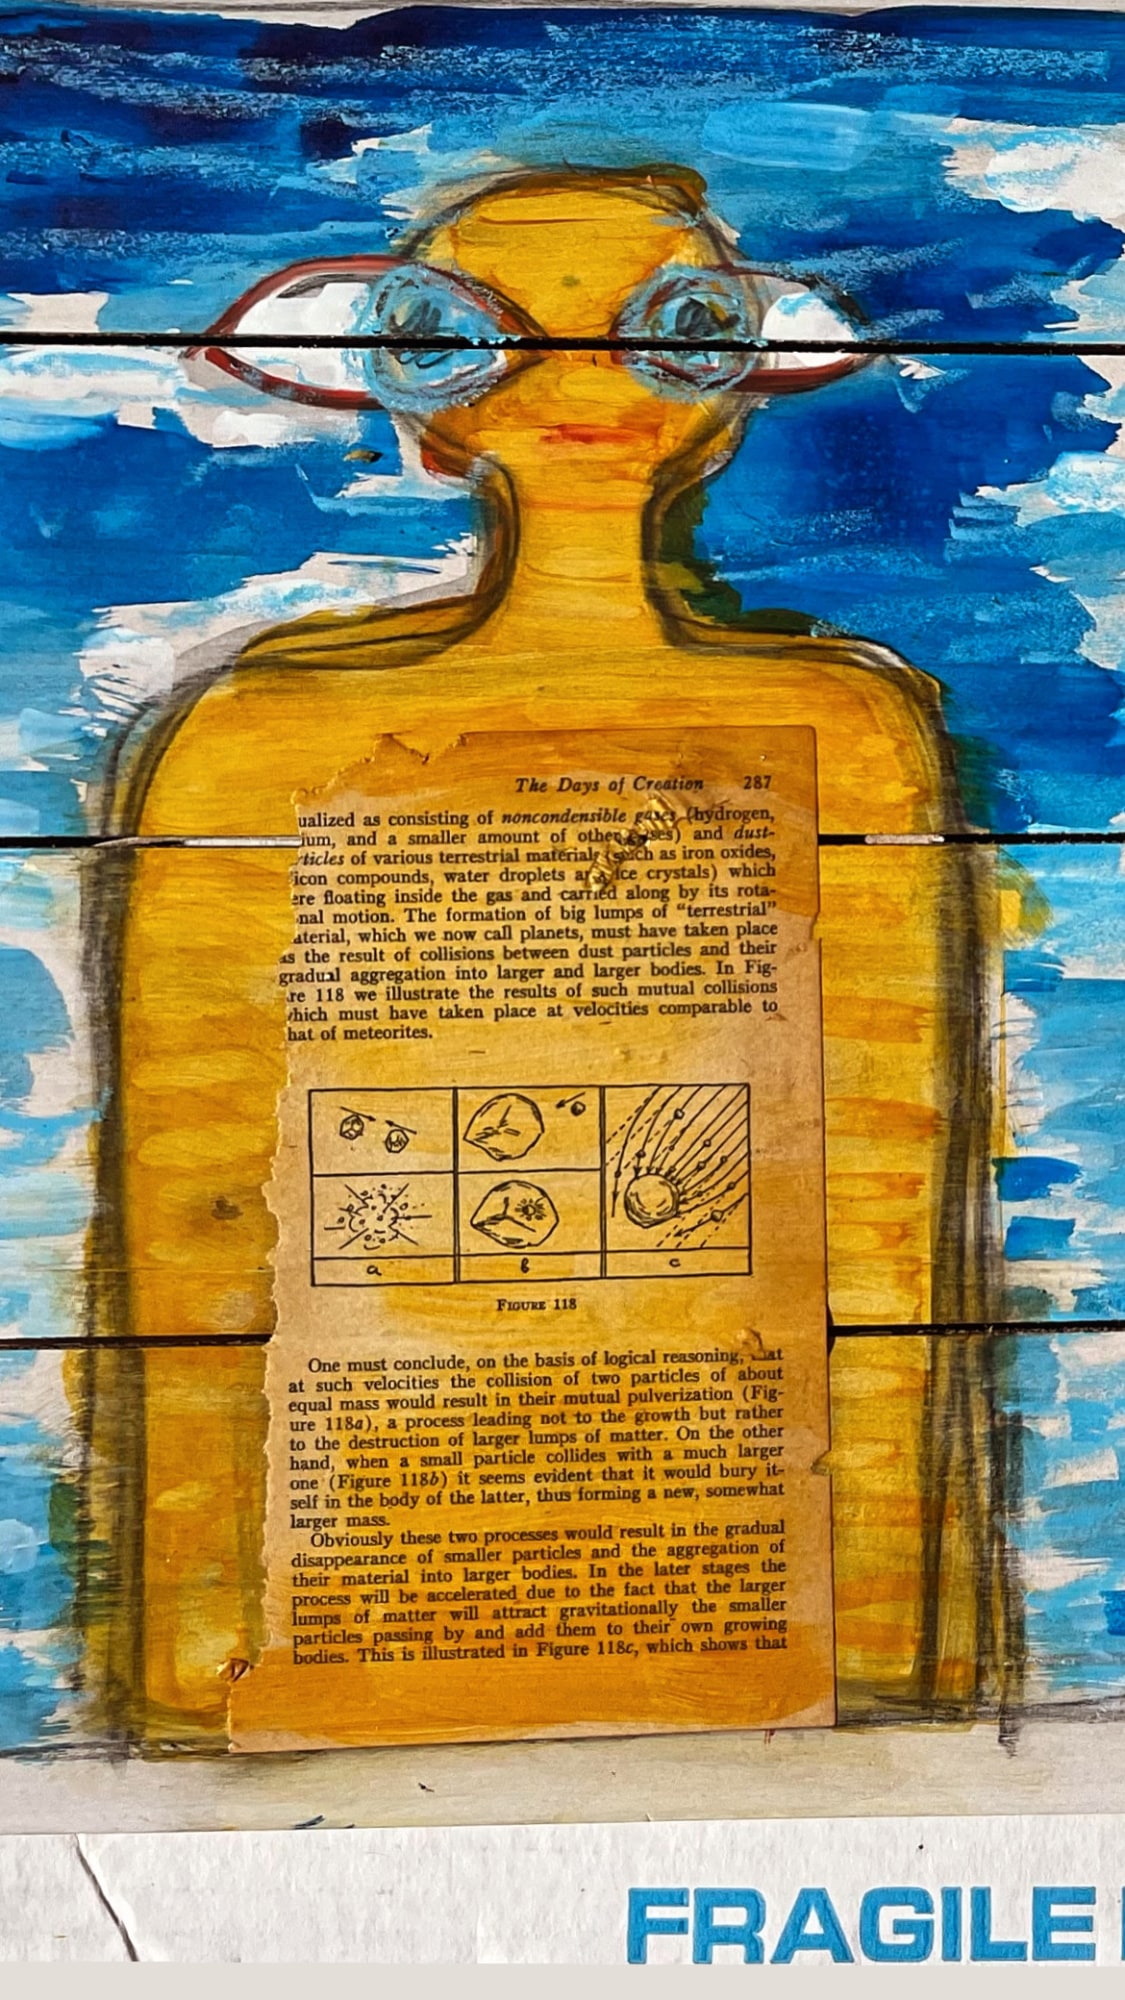 The Days of Creation 287
ualized as consisting of noncondensible gases (hydrogen,
ium, and a smaller amount of other gases) and dust-
rticles of various terrestrial materials (such as iron oxides,
icon compounds, water droplets and ice crystals) which
ere floating inside the gas and carried along by its rota-
nal motion. The formation of big lumps of "terrestrial"
aterial, which we now call planets, must have taken place
as the result of collisions between dust particles and their
gradual aggregation into larger and larger bodies. In Fig-
re 118 we illustrate the results of such mutual collisions
hich must have taken place at velocities comparable to
hat of meteorites.
a b c
FIGURE 118
One must conclude, on the basis of logical reasoning, that
at such velocities the collision of two particles of about
equal mass would result in their mutual pulverization (Fig-
ure 118a), a process leading not to the growth but rather
to the destruction of larger lumps of matter. On the other
hand, when a small particle collides with a much larger
one (Figure 118b) it seems evident that it would bury it-
self in the body of the latter, thus forming a new, somewhat
larger mass.
Obviously these two processes would result in the gradual
disappearance of smaller particles and the aggregation of
their material into larger bodies. In the later stages the
process will be accelerated due to the fact that the larger
lumps of matter will attract gravitationally the smaller
particles passing by and add them to their own growing
bodies. This is illustrated in Figure 118c, which shows that
FRAGILE